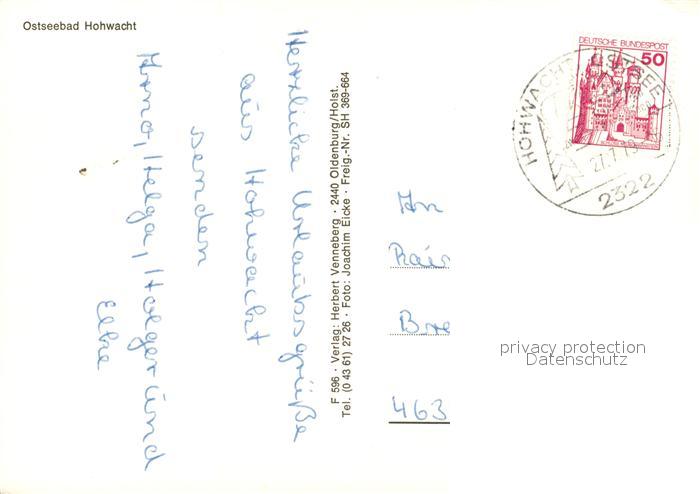 Ostseebad Hohwacht
Herzliche Urlaubsgrüße
aus Hohwacht
senden
Helga, Holger und
Elke
F 596 · Verlag: Herbert Venneberg · 2440 Oldenburg/Holst.
Tel. (0 43 61) 27 26 · Foto: Joachim Eicke · Freig.-Nr. SH 369-664
DEUTSCHE BUNDESPOST
50
HOHWACHT OSTSEE
27.7.
2322
An
463
privacy protection
Datenschutz